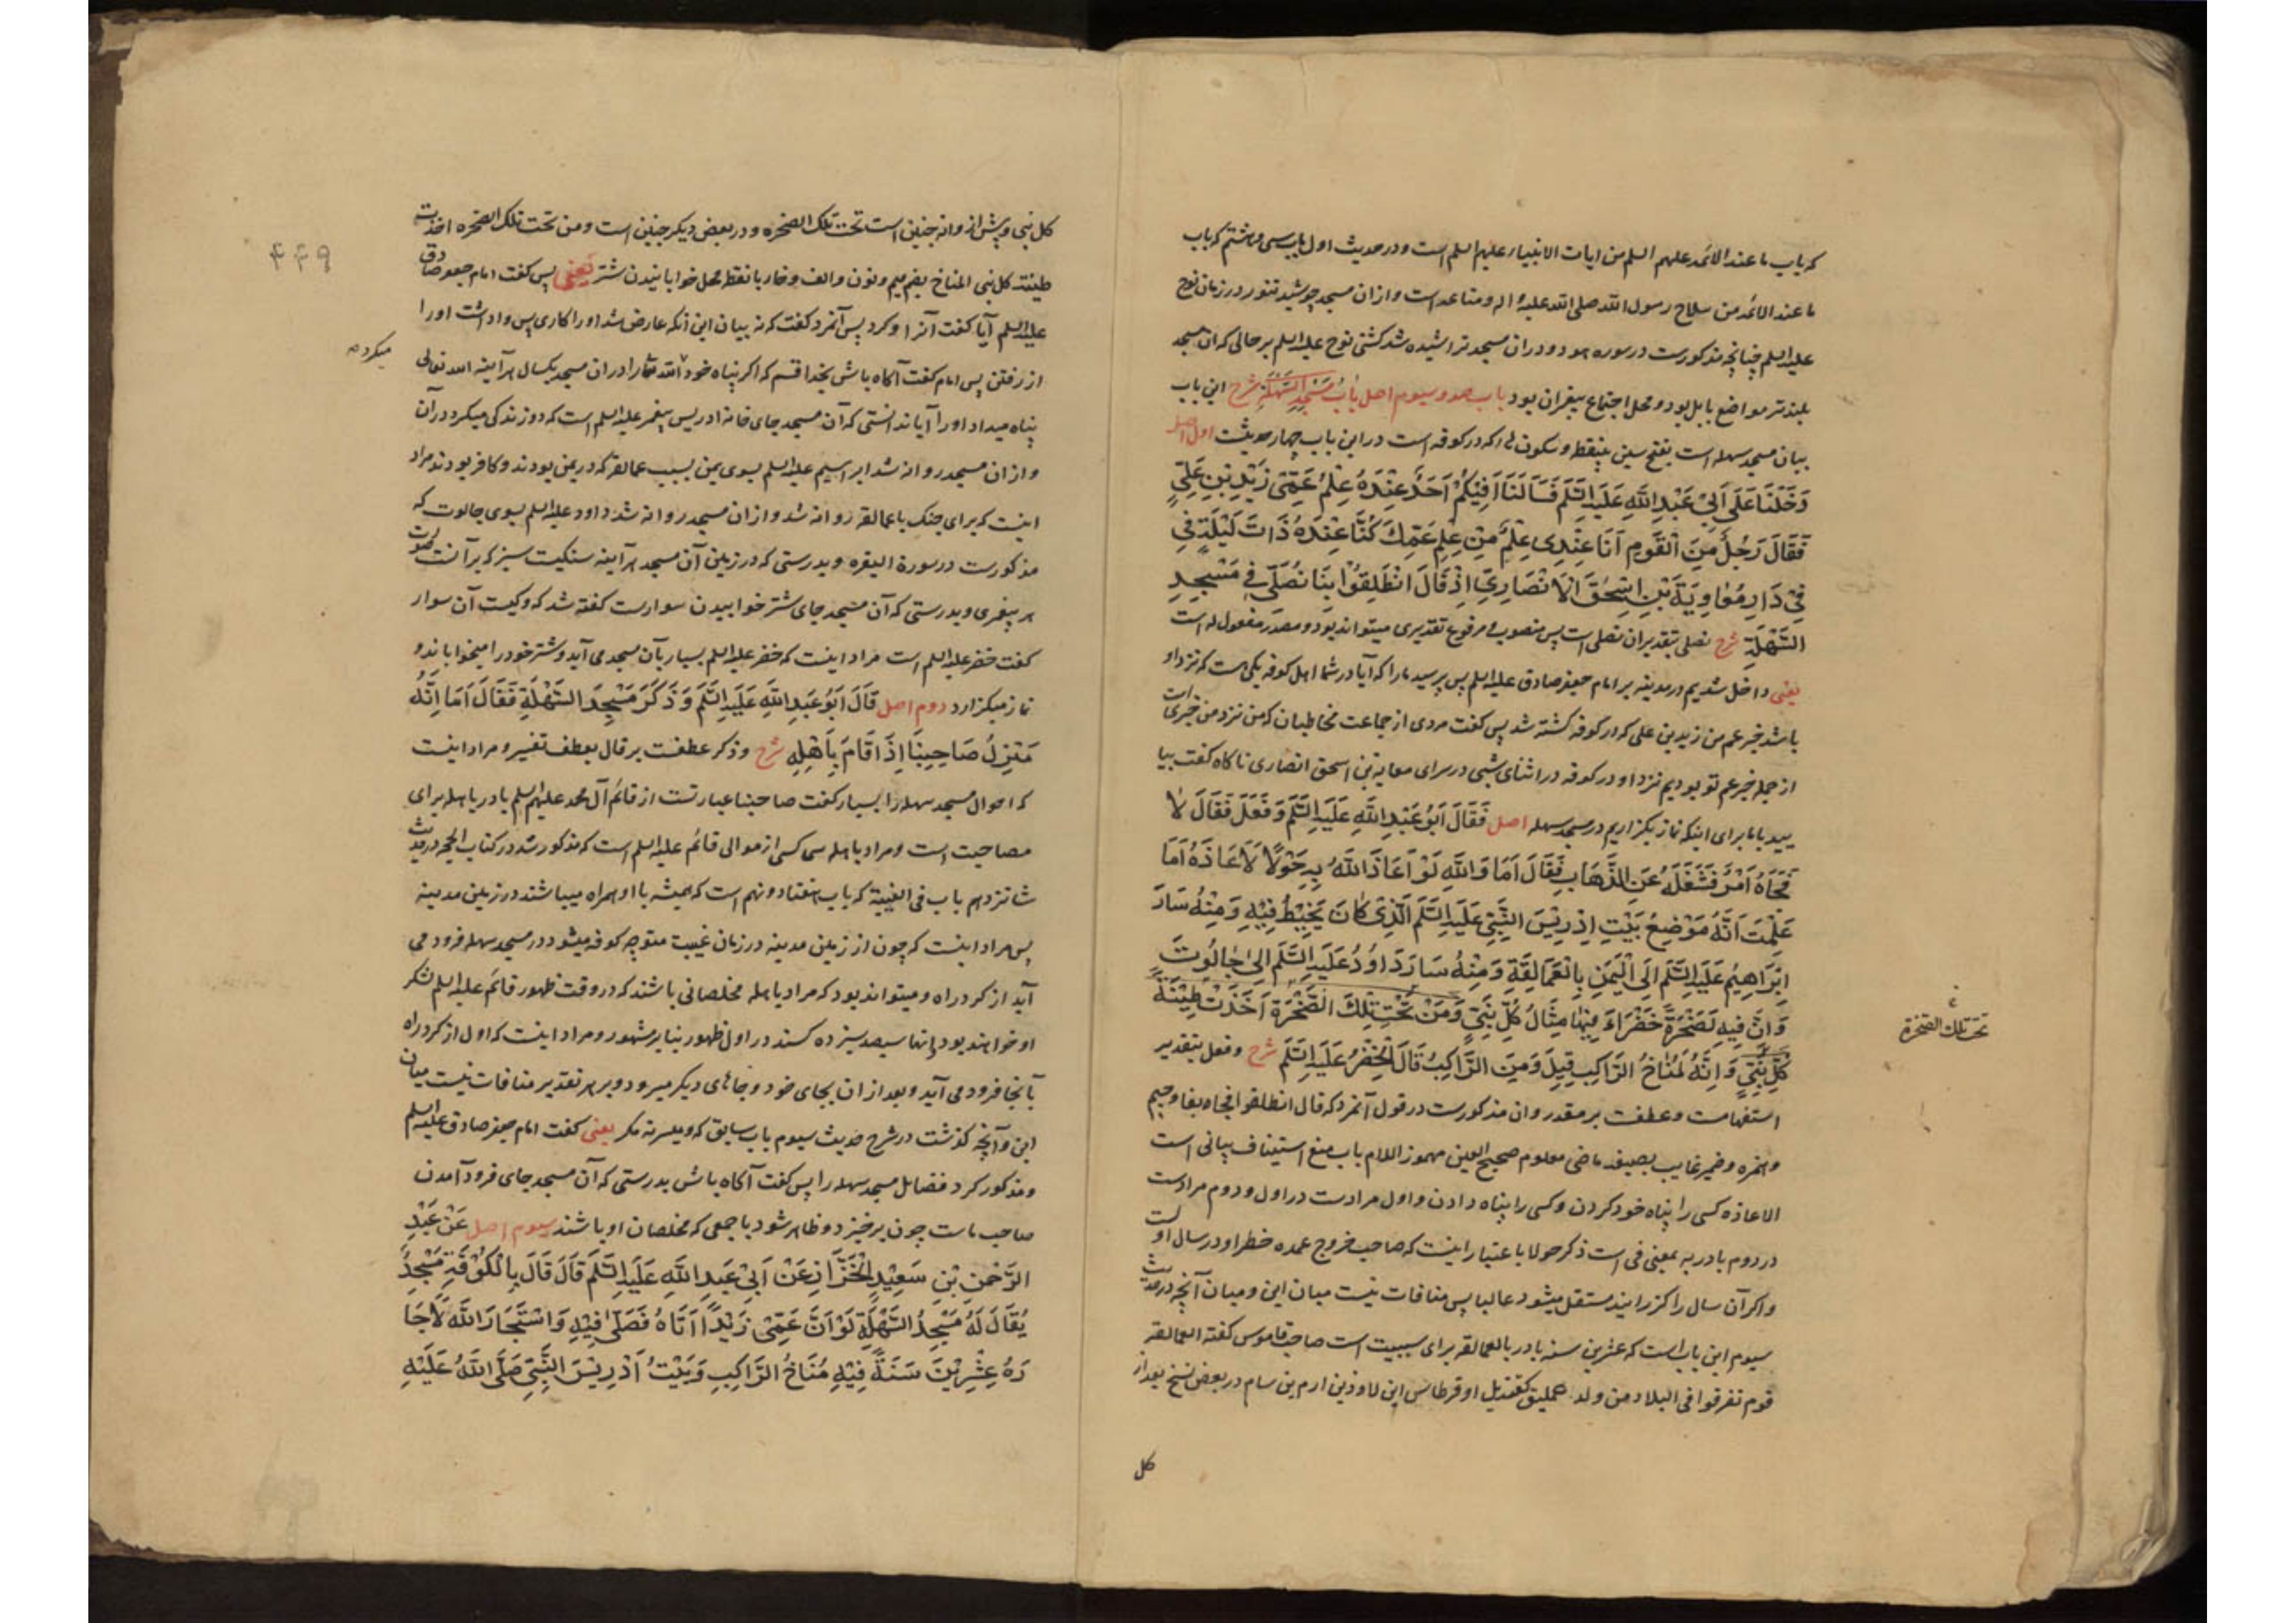 که باب ما عند الائمه علیهم السلم من ایات الانبیاء علیهم السلم است و در حدیث اول باب سی و هشتم که باب
ما عند الائمه من سلاح رسول الله صلی الله علیه و اله و متاعه است و ازان مسجد جوشید تنور در زمان نوح
علیه السلم چنانچه مذکورست در سوره هود و دران مسجد تراشیده شد کشتی نوح علیه السلم بر حالی که ان مسجد
بلندتر مواضع بابل بود و محل اجتماع پیغبران بود باب صد و سیوم اصل بَابُ مَسْجِدِ السَّهْلَةِ شرح این باب
بیان مسجد سهله است بفتح سین بینقطه و سکون ها که در کوفه است در این باب چهار حدیثت اول اصل
دَخَلْنَا عَلَی اَبِیْ عَبْدِ اللّٰهِ عَلَیْهِ السَّلَم فَسَاَلَنَا اَفِیْکُمْ اَحَدٌ عِنْدَهُ عِلْمُ عَمِّیْ زَیْدِ بْنِ عَلِیٍّ
فَقَالَ رَجُلٌ مِنَ الْقَوْمِ اَنَا عِنْدِی عِلْمٌ مِنْ عِلْمِ عَمِّكَ کُنَّا عِنْدَهُ ذَاتَ لَیْلَةٍ فِی
فِیْ دَارِ مُعٰاوِیَةَ بْنِ اِسْحٰقَ الْاَنْصَارِیِّ اِذْ قَالَ انْطَلِقُوْا بِنَا نُصَلِّی فِی مَسْجِدِ
السَّهْلَةِ شرح نصلی بتقدیر ان نصلی است پس منصوب یا مرفوع تقدیری میتواند بود و مصدر مفعول له است
یعنی داخل شدیم در مدینه بر امام جعفر صادق علیه السلم پس پرسید مارا که آیا در شما اهل کوفه یکی هست که نزد او
باشد خبر عم من زید بن علی که در کوفه کشته شد پس گفت مردی از جماعت مخاطبان که من نزد من خبری است
از جمله خبر عم تو بودیم نزد او در کوفه در اثنای شبی در سرای معویه بن اسحق انصاری ناکاه کفت بیا
یید با ما برای اینکه نماز بکزاریم در مسجد سهله اصل فَقَالَ اَبُوْ عَبْدِ اللّٰهِ عَلَیْهِ السَّلَم وَ فَعَلَ فَقَالَ لَا
فَجَاهُ اَمْرٌ فَشَغَلَهُ عَنِ الذَّهَابِ فَقَالَ اَمَا وَاللّٰهِ لَوْ اَعَاذَ اللّٰهُ بِهِ حَوْلًا لَاَعَاذَهُ اَمَا
عَلِمْتَ اَنَّهُ مَوْضِعُ بَیْتِ اِدْرِیْسَ النَّبِیِّ عَلَیْهِ السَّلَم الَّذِیْ کَانَ یَخِیْطُ فِیْهِ وَ مِنْهُ سَارَ
اِبْرَاهِیْمُ عَلَیْهِ السَّلَم اِلَی الْیَمَنِ بِالْعَمَالِقَةِ وَ مِنْهُ سَارَ دَاوُدُ عَلَیْهِ السَّلَم اِلٰی جَالُوْتَ
وَ اِنَّ فِیْهِ لَصَخْرَةً خَضْرَاءَ فِیْهَا مِثَالُ کُلِّ نَبِیٍّ وَ مِنْ تَحْتِ تِلْكَ الصَّخْرَةِ اُخِذَتْ طِیْنَةُ
تحت تلك الصخرة
کُلِّ نَبِیٍّ وَ اِنَّهُ لَمُنَاخُ الرَّاکِبِ قِیْلَ وَ مَنِ الرَّاکِبُ قَالَ الْخَضِرُ عَلَیْهِ السَّلَم شرح و فعل بتقدیر
استفهامت و عطفت بر مقدر و ان مذکورست در قول آنمرد که قال انطلقوا فجاه بفا و جیم
و همزه و ضمیر غایب بصیغه ماضی معلوم صحیح العین مهموز اللام باب منع استیناف بیانی است
الاعاذه کسی را پناه خود کردن و کسی را پناه دادن و اول مرادست در اول و دوم مرادست
در دوم با در به بمعنی فی است ذکر حولا باعتبار اینست که صاحب خروج عمده خطر او در سال اولست
و اکر آن سال را کزرانید مستقل میشود غالبا پس منافات نیست میان این و میان آنچه در حدیث
سیوم این باب است که عشرین سنه با در بالعمالقه برای سببیت است صاحب قاموس کفته العمالقه
قوم تفرقوا فی البلاد من ولد عملیق کقندیل او قرطاس ابن لاوذ بن ارم بن سام در بعض نسخ بعد از
کل
کل نبی و پیش از و انه چنین است تحت تلک الصخره و در بعض دیکر چنین است و من تحت تلک الصخره اخذت
طینته کل نبی المناخ بضم میم و نون و الف و خا با نقطه محل خوابانیدن شتر یعنی پس کفت امام جعفر صادق
۴۴۹
علیه السلم آیا کفت آنرا و کرد پس آنمرد کفت که نه بیان این آنکه عارض شد او را کاری پس واداشت او را
از رفتن پس امام کفت آکاه باش بخدا قسم که اکر پناه خود الله را دران مسجد یکسال هرآینه الله تعالی
میکرد
پناه میداد او را آیا ندانستی که آن مسجد جای خانه ادریس پیغمبر علیه السلم است که دوزندکی میکرد در آن
و ازان مسجد روانه شد ابراهیم علیه السلم بسوی یمن بسبب عمالقه که در یمن بودند و کافر بودند مراد
اینست که برای جنک با عمالقه روانه شد و ازان مسجد روانه شد داود علیه السلم بسوی جالوت که
مذکورست در سورة البقره و بدرستی که در زمین آن مسجد هرآینه سنکیست سبز که برآنست صورت
هر پیغمبری و بدرستی که آن مسجد جای شتر خوابیدن سوارست کفته شد که و کیست آن سوار
کفت خضر علیه السلم است مراد اینست که خضر علیه السلم بسیار بآن مسجد می آید و شتر خود را میخواباند و
نماز میکزارد دوم اصل قَالَ اَبُوْ عَبْدِ اللّٰهِ عَلَیْهِ السَّلَم وَ ذَکَرَ مَسْجِدَ السَّهْلَةِ فَقَالَ اَمَا اِنَّهُ
مَنْزِلُ صَاحِبِنَا اِذَا قَامَ بِاَهْلِهِ شرح و ذکر عطفت بر قال بعطف تفسیر و مراد اینست
که احوال مسجد سهله را بسیار کفت صاحبنا عبارتست از قائم آل محمد علیهم السلم با در باهله برای
مصاحبت است و مراد باهله سی کس از موالی قائم علیه السلم است که مذکور شد در کتاب الحجه در حدیث
شانزدهم باب فی الغیبة که باب هفتاد و نهم است که همیشه با او همراه میباشند در زمین مدینه
پس مراد اینست که چون از زمین مدینه در زمان غیبت متوجه کوفه میشود در مسجد سهله فرود می
آید از کرد راه و میتواند بود که مراد باهله مخلصانی باشند که در وقت ظهور قائم علیه السلم لشکر
او خواهند بود و انها سیصد و سیزده کسند در اول ظهور بنابر مشهور و مراد اینست که اول از کرد راه
بآنجا فرود می آید و بعد ازان بجای خود و جاهای دیکر میرود و بر هر تقدیر منافات نیست میان
این و آنچه کذشت در شرح حدیث سیوم باب سابق که و میسرته مکر یعنی کفت امام جعفر صادق علیه السلم
و مذکور کرد فضایل مسجد سهله را پس کفت آکاه باش بدرستی که آن مسجد جای فرود آمدن
صاحب ماست چون برخیزد و ظاهر شود با جمعی که مخلصان او باشند سیوم اصل عَنْ عَبْدِ
الرَّحْمٰنِ بْنِ سَعِیْدٍ الْخَزَّازِ عَنْ اَبِیْ عَبْدِ اللّٰهِ عَلَیْهِ السَّلَم قَالَ قَالَ بِالْکُوْفَةِ مَسْجِدٌ
یُقَالُ لَهُ مَسْجِدُ السَّهْلَةِ لَوْ اَنَّ عَمِّیْ زَیْدًا اَتَاهُ فَصَلّٰی فِیْهِ وَ اسْتَجَارَ اللّٰهَ لَاَجَا
رَهُ عِشْرِیْنَ سَنَةً فِیْهِ مُنَاخُ الرَّاکِبِ وَ بَیْتُ اِدْرِیْسَ النَّبِیِّ صَلَّی اللّٰهُ عَلَیْهِ